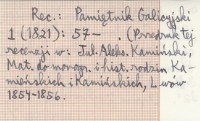 Rec.: Pamiętnik Galicyjski
1 (1821): 57— . (Przedruk tej
recenzji w: Jul. Aleks. Kamiński,
Mat. do monogr. i hist. rodzin Ka-
mieńskich i Kamińskich, Lwów
1854-1856.